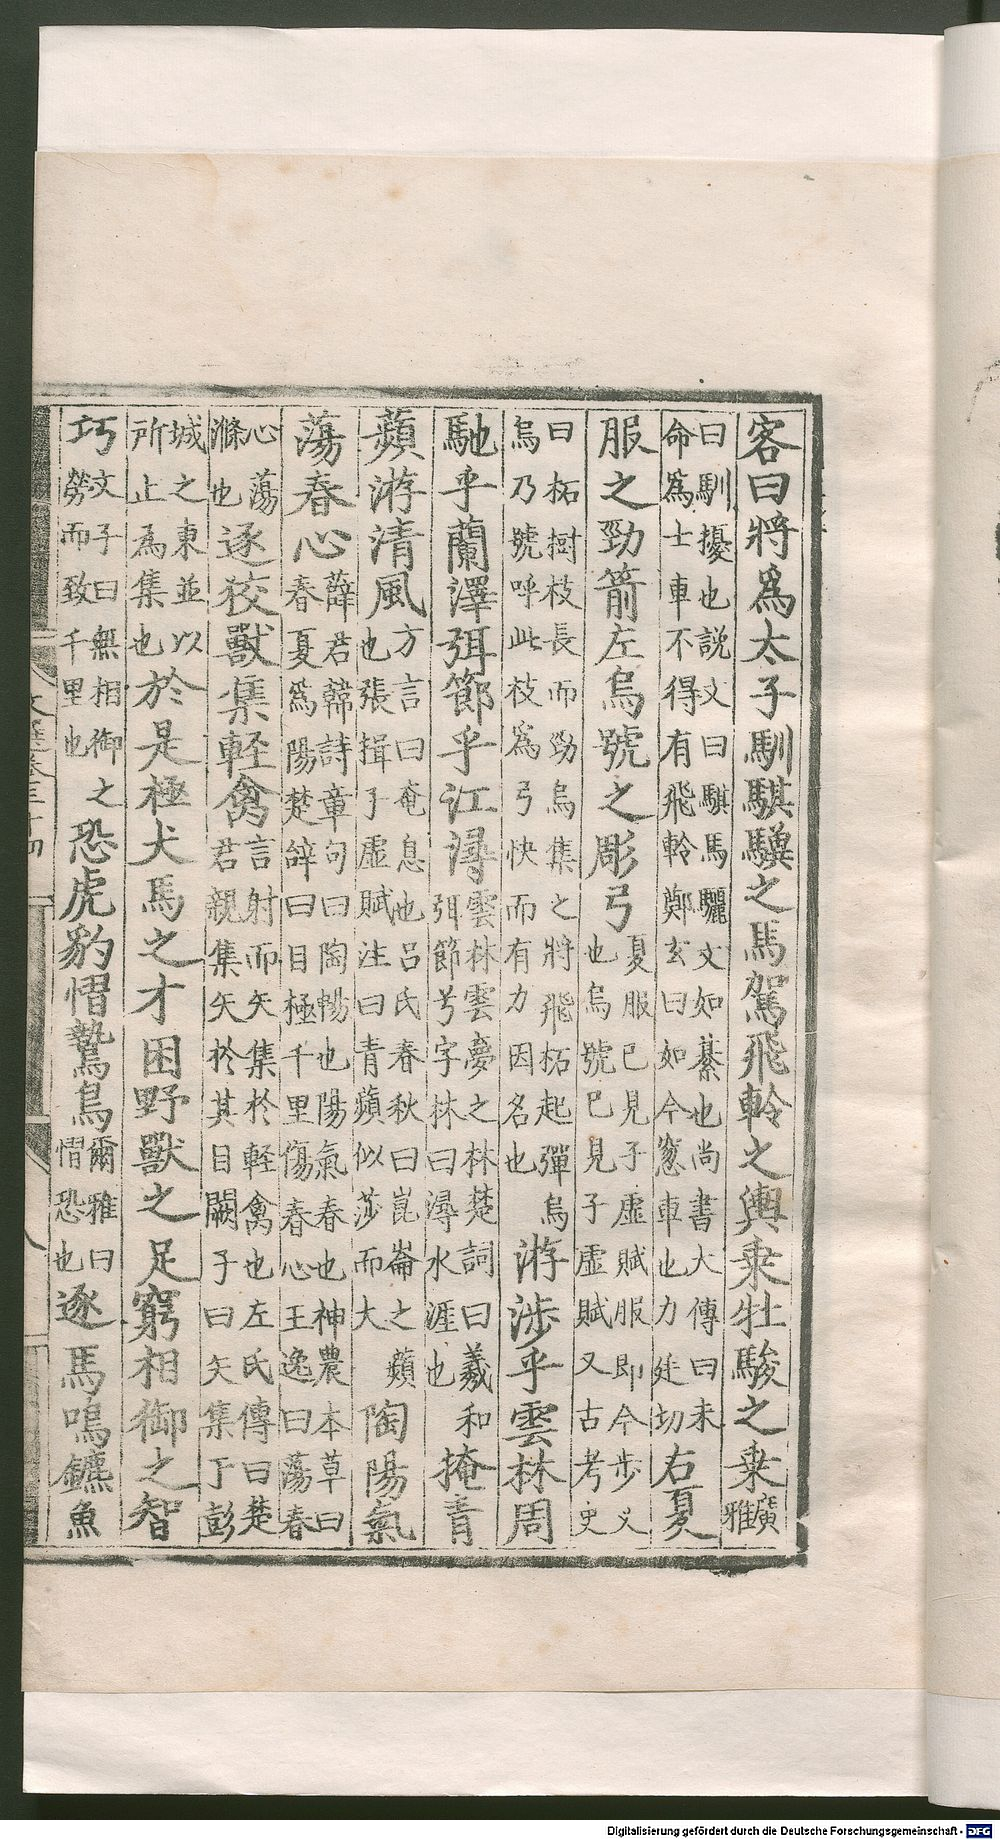 客曰將爲太子馴騏驥之馬駕飛軨之輿乗牡駿之椉廣雅
曰馴擾也説文曰騏馬驪文如綦也尚書大傳曰未
命爲士車不得有飛軨鄭玄曰如今窻車也力廷切右夏
服之勁箭左烏號之彫弓夏服已見子虛賦服即今步叉也烏號已見子虛賦又古考史
曰柘樹枝長而勁烏集之將飛柘起彈烏
烏乃號呼此枝爲弓快而有力因名也游涉乎雲林周
馳乎蘭澤弭節乎江潯雲林雲夢之林楚詞曰羲和弭節兮字林曰潯水涯也掩青
蘋游清風方言曰奄息也呂氏春秋曰崑崙之蘋也張揖子虛賦注曰青蘋似莎而大陶陽氣
蕩春心薛君韓詩章句曰陶暢也陽氣春也神農本草曰春夏爲陽楚辝曰目極千里傷春心王逸曰蕩春
心蕩滌也逐狡獸集輕禽言射而矢集於輕禽也左氏傳曰楚君親集矢於其目闕子曰矢集于彭
城之東並以所止為集也於是極犬馬之才困野獸之足窮相御之智
巧文子曰無相御之勞而致千里也恐虎豹慴鷙鳥爾雅曰慴恐也逐馬鳴鑣魚
文選卷三十四
八
Digitalisierung gefördert durch die Deutsche Forschungsgemeinschaft - DFG